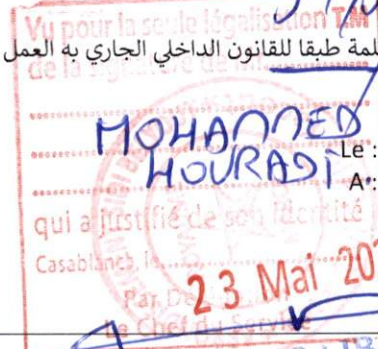 Vu pour la seule légalisation T.M
لمة طبقا للقانون الداخلي الجاري به العمل
de la signature de
MOHAMMED
HOURADI
Le :
A :
qui a justifié de son identité
Casablanca, le
23 Mai 20
Par Dé
Le Chef du Service